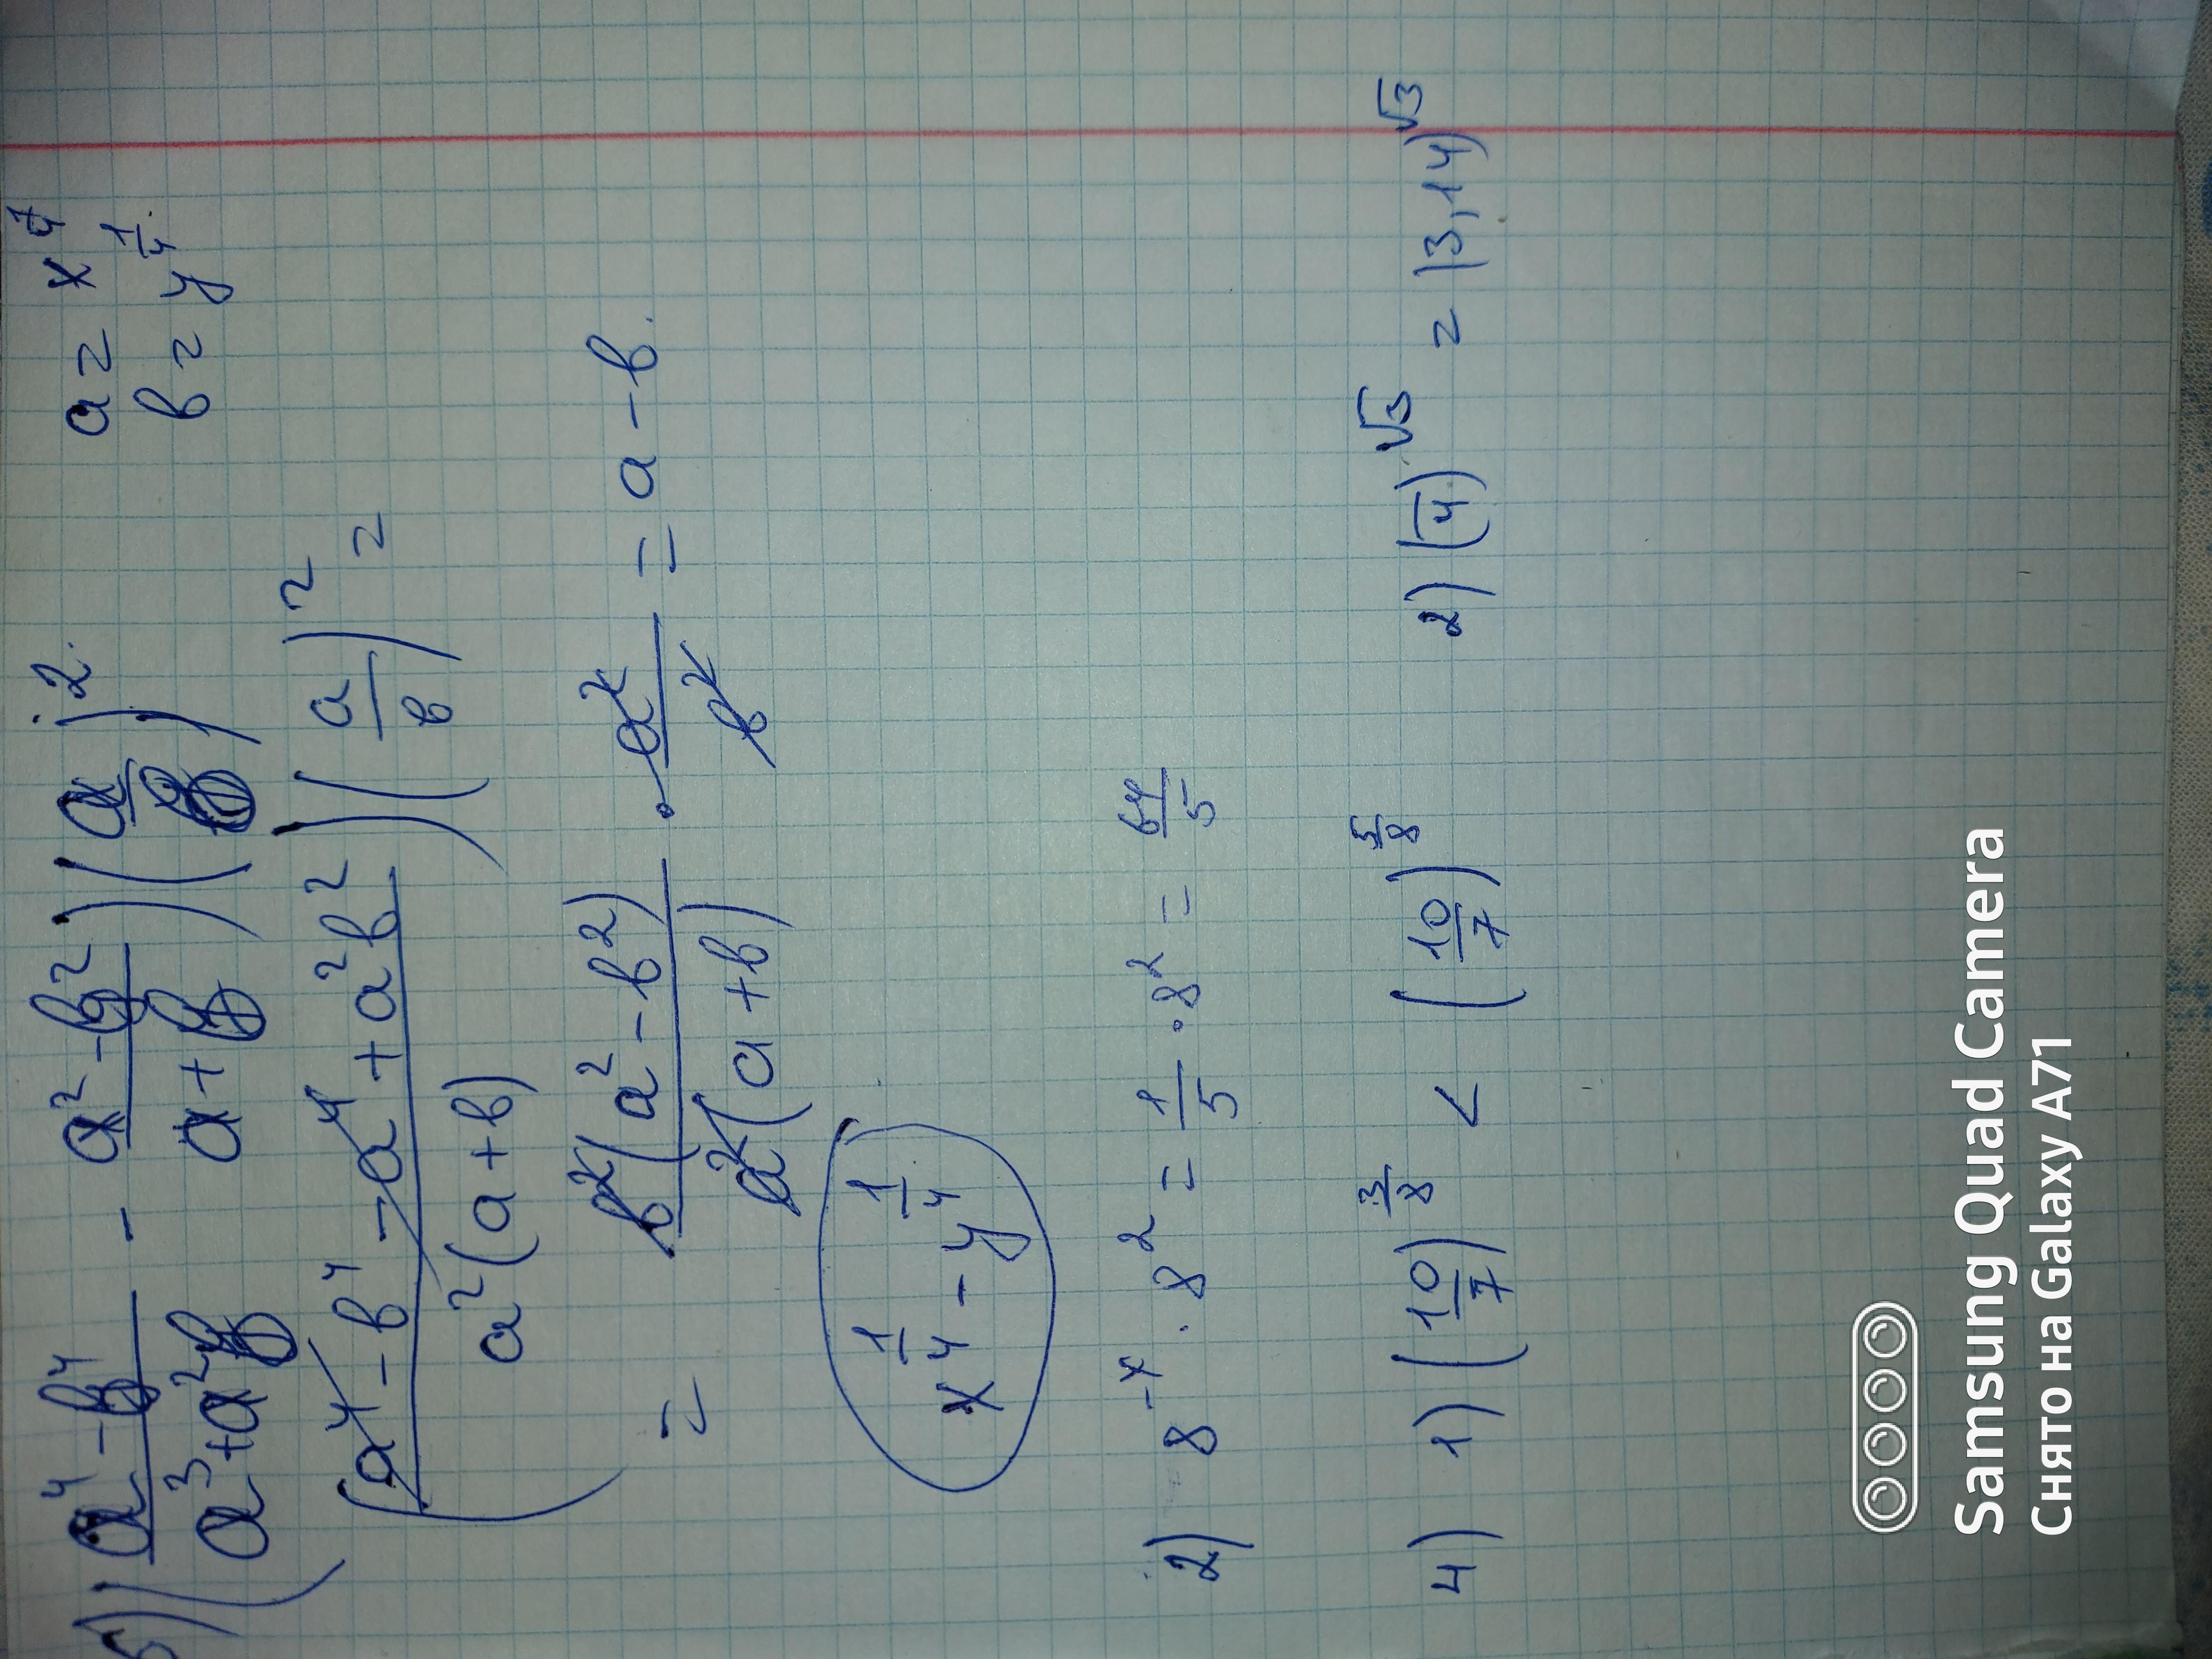 5) ((a⁴-b⁴)/(a³+a²b) - (a²-b²)/(a+b)) (a/b)². a = x^(1/4)
b = y^(1/4).
((a⁴-b⁴-a⁴+a²b²)/(a²(a+b))) (a/b)² =
= (b²(a²-b²))/(a²(a+b)) · a²/b² = a-b.
x^(1/4) - y^(1/4)
2) 8^(-x) · 8² = 1/5 · 8² = 64/5
4) 1) (10/7)^(3/8) < (10/7)^(5/8) 2) (π)^√3 = (3,14)^√3
Samsung Quad Camera
Снято на Galaxy A71